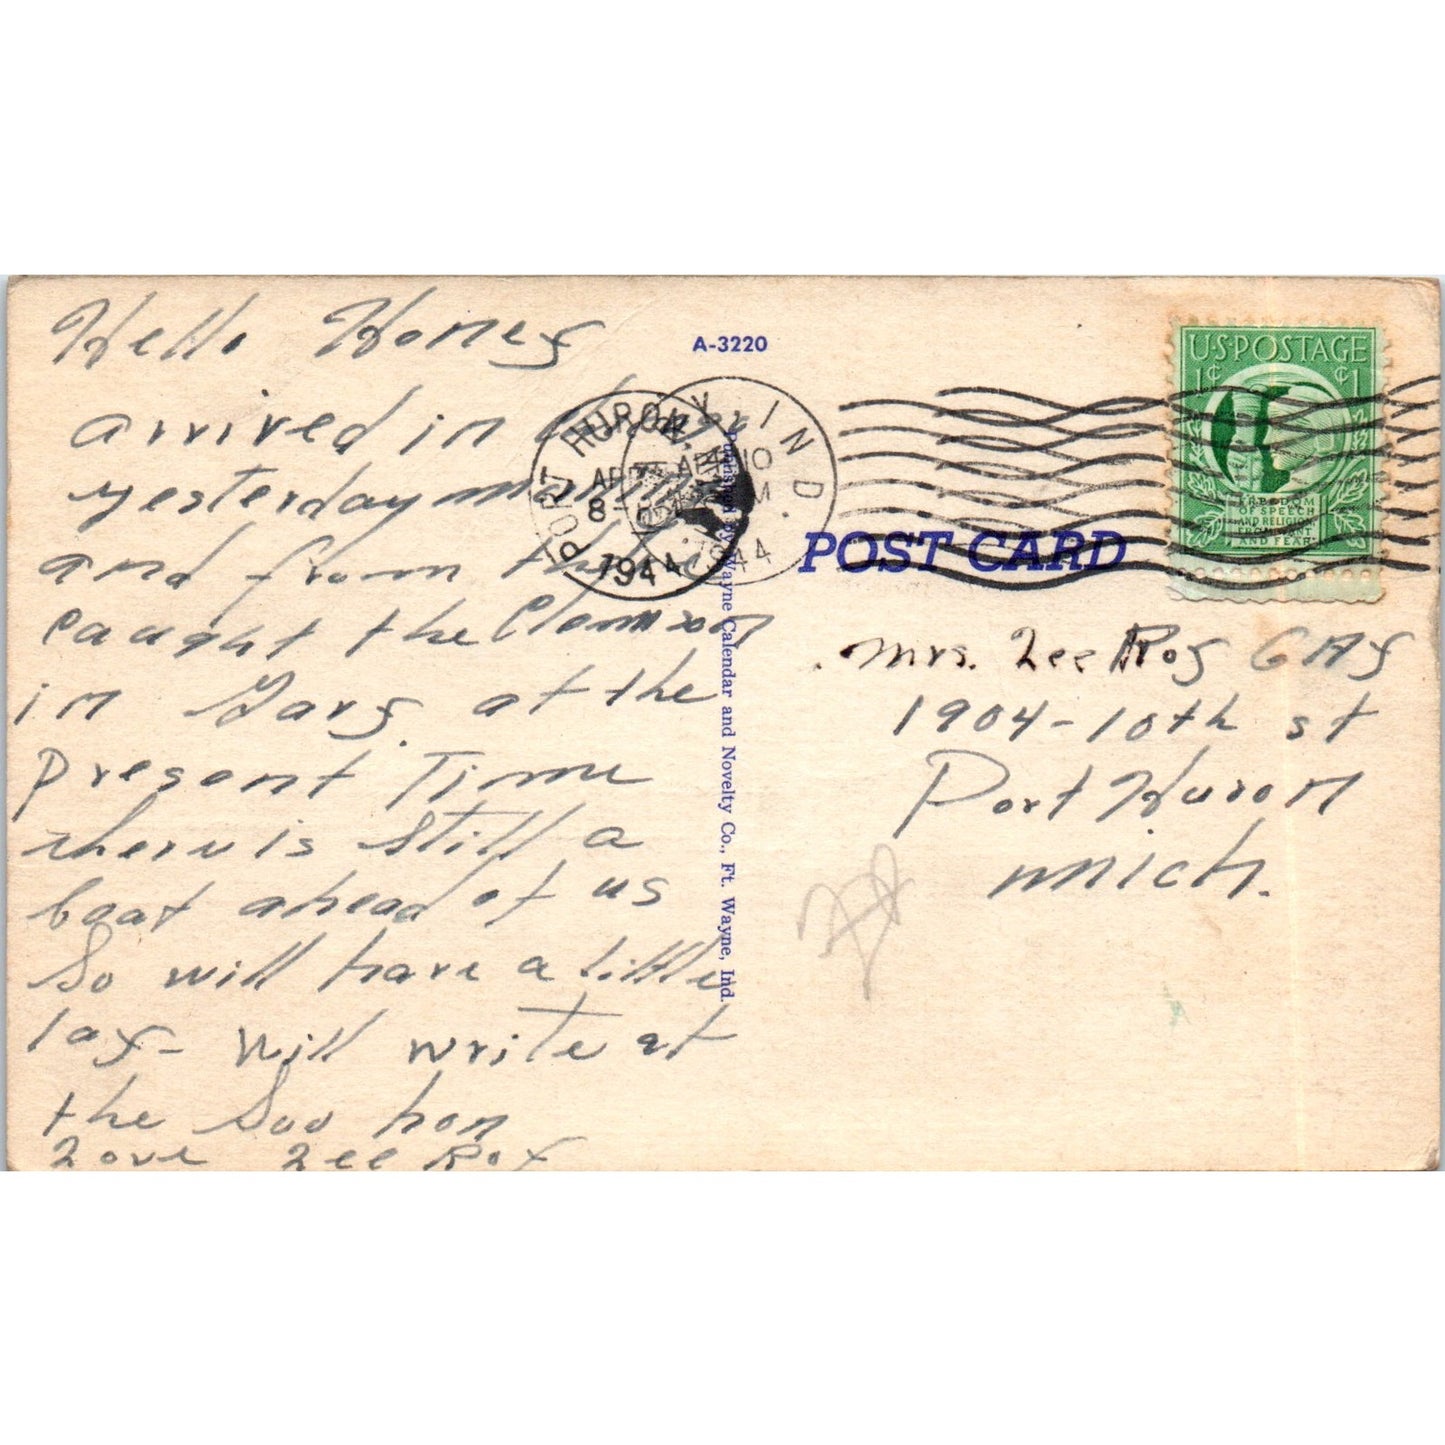 Hello Honey
arrived in
yesterday
and from
caught the Clemson
in Gary. at the
present Time
there is still a
boat ahead of us
So will have a little
lay - Will write at
the Soo hon
Love Lee Roy
A-3220
PORT HURON
APR
8-
1944
Y, IND.
APR 10
M
1944
Published by Wayne Calendar and Novelty Co., Ft. Wayne, Ind.
POST CARD
U·S·POSTAGE
1¢ ¢1
FREEDOM
OF SPEECH
AND RELIGION,
FROM WANT
AND FEAR
Mrs. Lee Roy GAy
1904-10th st
Port Huron
Mich.